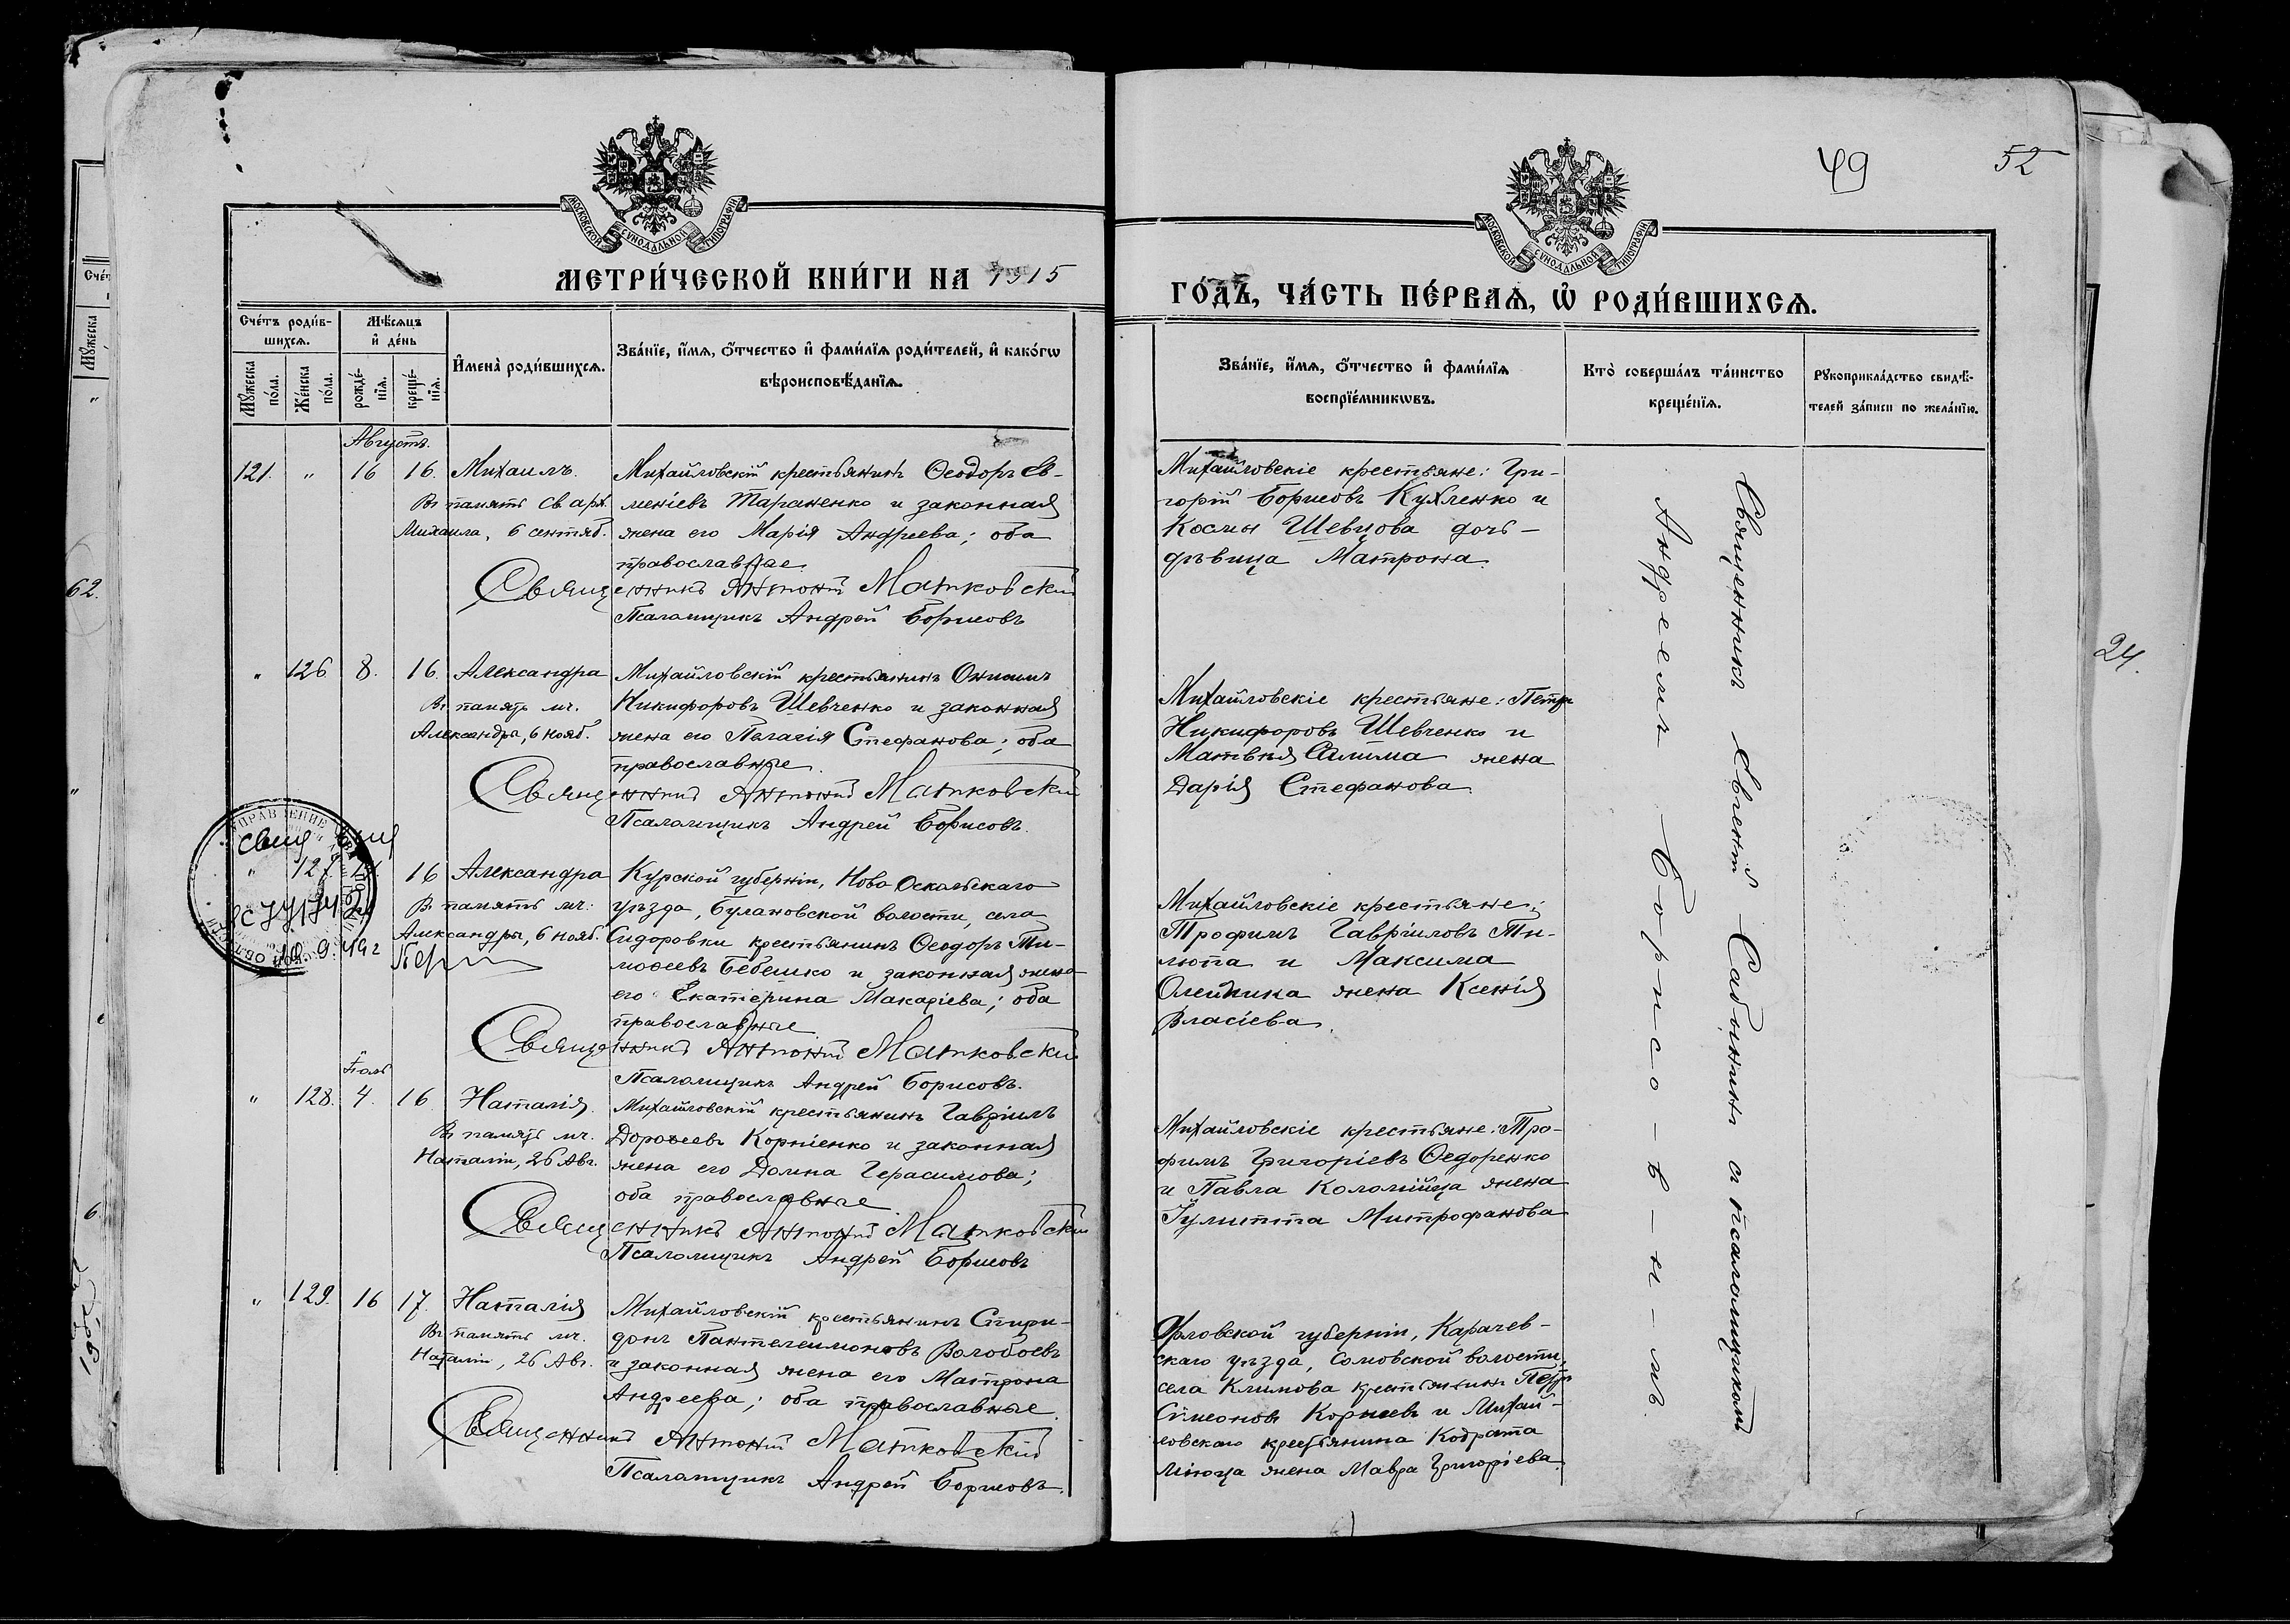 49
52
МОСКОВСКОЙ СѴНОДАЛЬНОЙ ТИПОГРАФІИ
МОСКОВСКОЙ СѴНОДАЛЬНОЙ ТИПОГРАФІИ
МЕТРИ́ЧЕСКОЙ КНИ́ГИ НА 1915
ГО́ДЪ, ЧА́СТЬ ПЕ́РВАѦ, Ѡ РОДИ́ВШИХСѦ.
Сче́тъ роди́в-
шихсѧ.
Мꙋ́жеска по́ла.
Же́нска по́ла.
Мѣ́сѧцъ и де́нь
рожде́-нїѧ.
креще́-нїѧ.
Имена̀ роди́вшихсѧ.
Зва́нїе, и́мѧ, ѻ́тчество и фами́лїѧ роди́телей, и како́гѡ
вѣроисповѣ́данїѧ.
Зва́нїе, и́мѧ, ѻ́тчество и фами́лїѧ
воспрїе́мникѡвъ.
Кто̀ соверша́лъ та́инство
креще́нїѧ.
Рꙋкоприкла́дство свидѣ́-
телей за́писи по жела́нїю.
Августъ.
121. " 16 16. Михаилъ.
Въ память св. арх.
Михаила, 6 сентяб.
Михайловскій крестьянинъ Ѳеодоръ Ев-
меніевъ Тараненко и законная
жена его Марія Андреева; оба
православные.
Священникъ Антоній Матковскій
Псаломщикъ Андрей Борисовъ
Михайловскіе крестьяне: Гри-
горій Борисовъ Кухленко и
Космы Шевцова дочь -
дѣвица Матрона.
" 126 8. 16. Александра
Въ память мч.
Александры, 6 нояб.
Михайловскій крестьянинъ Онисимъ
Никифоровъ Шевченко и законная
жена его Пелагія Стефанова; оба
православные.
Священникъ Антоній Матковскій
Псаломщикъ Андрей Борисовъ.
Михайловскіе крестьяне: Петръ
Никифоровъ Шевченко и
Матвѣя жена
Дарія Стефанова.
" 127. 16 Александра
Въ память мч.
Александры, 6 нояб.
Курской губерніи, Ново Оскольскаго
уѣзда, Булановской волости, села
Сидоровки крестьянинъ Ѳеодоръ Ти-
моѳеевъ Бебешко и законная жена
его Екатерина Макаріева; оба
православные
Священникъ Антоній Матковскій
Псаломщикъ Андрей Борисовъ.
Михайловскіе крестьяне:
Трофимъ Гавріиловъ Ти-
люпа и Максима
Олейника жена Ксенія
Власіева.
10.9.49г
Іюль
" 128. 4. 16 Наталія.
Въ память мч.
Наталіи, 26 Авг.
Михайловскій крестьянинъ Гавріилъ
Дороѳеевъ Корніенко и законная
жена его Домна Герасимова;
оба православные
Священникъ Антоній Матковскій
Псаломщикъ Андрей Борисовъ
Михайловскіе крестьяне: Тро-
фимъ Григоріевъ Ѳедоренко
и Павла Коломійца жена
Іулитта Митрофанова
" 129. 16 17. Наталія
Въ память мч.
Наталіи, 26 Авг.
Михайловскій крестьянинъ Спири-
донъ Пантелеимоновъ Волобоевъ
и законная жена его Матрона
Андреева; оба православные.
Священникъ Антоній Матковскій
Псаломщикъ Андрей Борисовъ.
Орловской губерніи, Карачев-
скаго уѣзда, Сомовской волости,
села Климова крестьянинъ Петръ
Сѵмеоновъ Корнеевъ и Михай-
ловскаго крестьянина Кодрата
жена Мавра Григоріева.
Священникъ Евгеній Сабынинъ съ псаломщикомъ
Андреемъ Борисо-в-ы-мъ.
62.
6.
24.